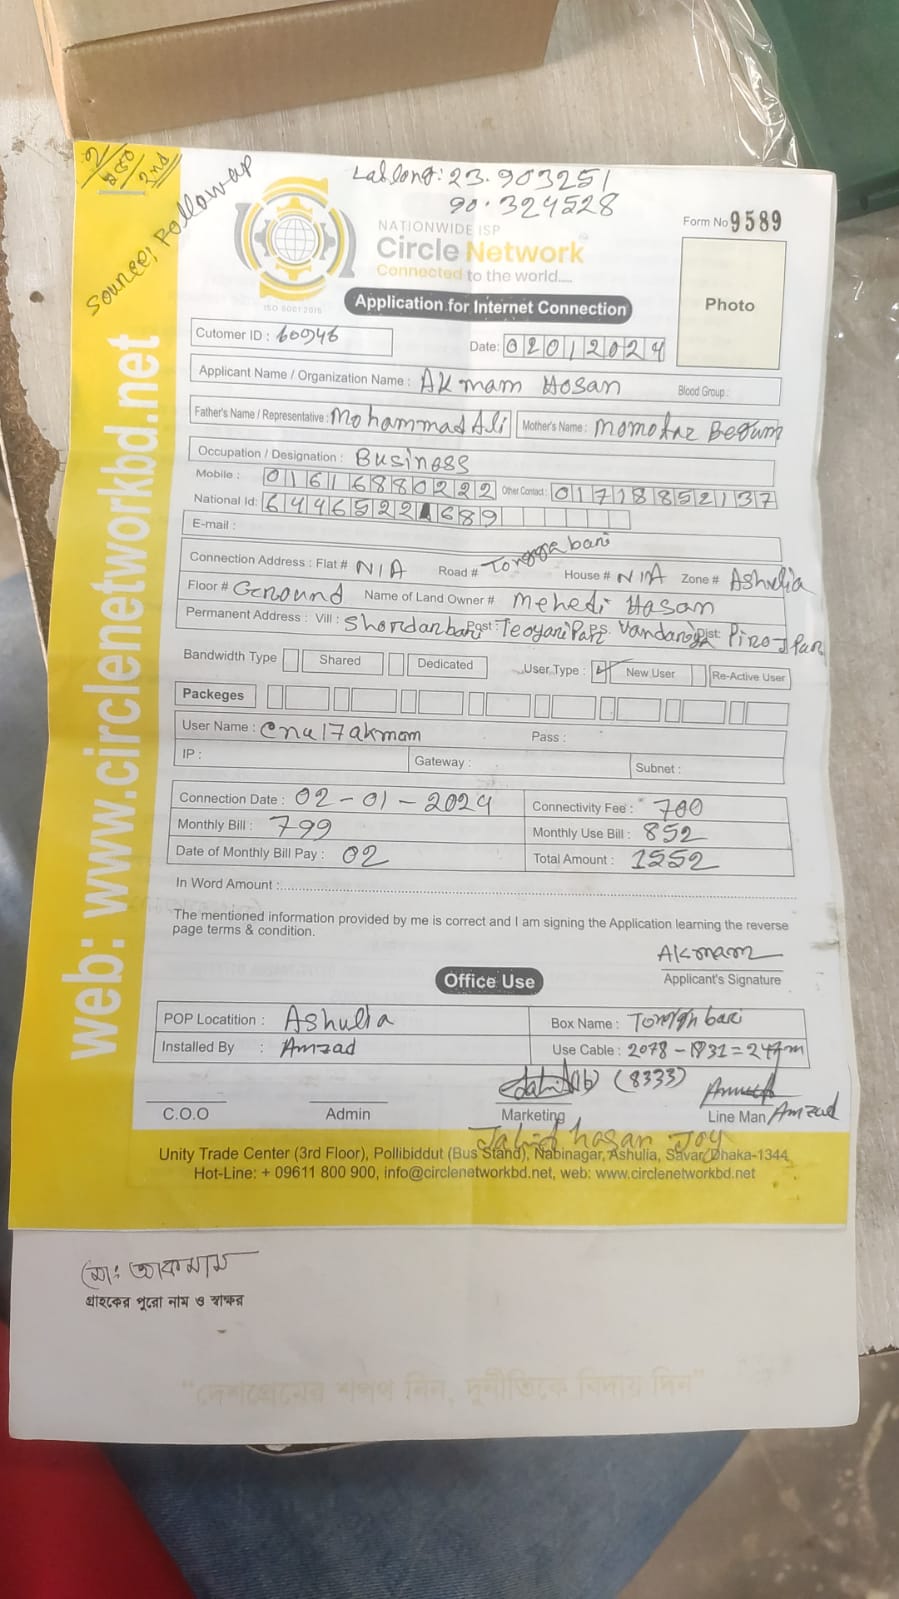 Lat long: 23.903251
90.324528
2nd
Source: Follow up
NATIONWIDE ISP
Circle Network
Connected to the world....
ISO 9001:2015
Form No 9589
Photo
Application for Internet Connection
Cutomer ID : 60946
Date: 02012024
Applicant Name / Organization Name : Akmam Hosan Blood Group :
Father's Name / Representative : Mohammad Ali Mother's Name : Momotaz Begum
Occupation / Designation : Business
Mobile : 01616880222 Other Contact : 01718852137
National Id: 
E-mail :
Connection Address : Flat # N/A Road # Tongga bari House # N/A Zone # Ashulia
Floor # Ground Name of Land Owner # Mehedi Hasan
Permanent Address : Vill : Shordarbari Post : P.S: Dist:
Bandwidth Type Shared Dedicated User Type : New User Re-Active User
Packeges
User Name : cnul7akmam Pass :
IP : Gateway : Subnet :
Connection Date : 02-01-2024 Connectivity Fee : 700
Monthly Bill : 799 Monthly Use Bill : 852
Date of Monthly Bill Pay : 02 Total Amount : 1552
In Word Amount :
The mentioned information provided by me is correct and I am signing the Application learning the reverse
page terms & condition.
Akmam
Applicant's Signature
Office Use
POP Locatition : Ashulia Box Name :
Installed By : Amzad Use Cable : 2078-1831=247m
(8333)
C.O.O Admin Marketing Line Man Amzad
Jahid hasan Joy
Unity Trade Center (3rd Floor), Pollibiddut (Bus Stand), Nabinagar, Ashulia, Savar, Dhaka-1344
Hot-Line: + 09611 800 900, info@circlenetworkbd.net, web: www.circlenetworkbd.net
web: www.circlenetworkbd.net
মো: আকমাম
গ্রাহকের পুরো নাম ও স্বাক্ষর
"দেশপ্রেমের শপথ নিন, দুর্নীতিকে বিদায় দিন"